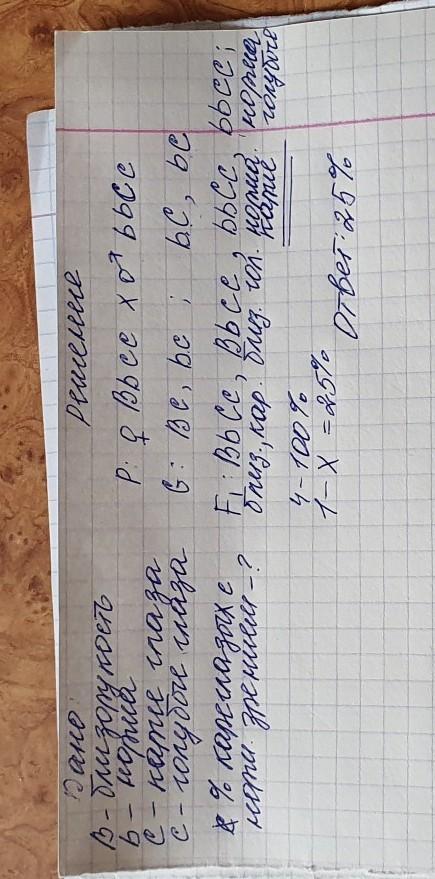 Дано:
B - близорукость
b - норма
C - карие глаза
c - голубые глаза
% кареглазых с
норм. зрением - ?
Решение
P: ♀ Bbcc x ♂ bbCc
G: Bc, bc ; bC, bc
F₁: BbCc, Bbcc, bbCc, bbcc;
близ., кар. близ. гол. норма. норма
карие голубые
4 - 100%
1 - X = 25% Ответ: 25%